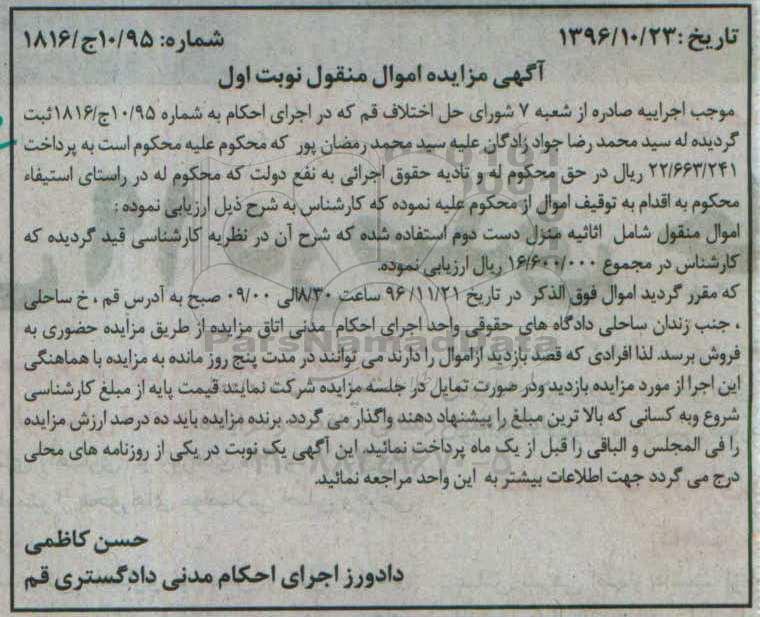 تاریخ: ۱۳۹۶/۱۰/۲۳
شماره: ۱۰/۹۵ج/۱۸۱۶
آگهی مزایده اموال منقول نوبت اول
موجب اجراییه صادره از شعبه ۷ شورای حل اختلاف قم که در اجرای احکام به شماره ۱۰/۹۵ج/۱۸۱۶ثبت
گردیده له سید محمد رضا جواد زادگان علیه سید محمد رمضان پور که محکوم علیه محکوم است به پرداخت
۲۲/۶۶۳/۲۴۱ ریال در حق محکوم له و تادیه حقوق اجرائی به نفع دولت که محکوم له در راستای استیفاء
محکوم به اقدام به توقیف اموال از محکوم علیه نموده که کارشناس به شرح ذیل ارزیابی نموده :
اموال منقول شامل اثاثیه منزل دست دوم استفاده شده که شرح آن در نظریه کارشناسی قید گردیده که
کارشناس در مجموع ۱۶/۶۰۰/۰۰۰ ریال ارزیابی نموده.
که مقرر گردید اموال فوق الذکر در تاریخ ۹۶/۱۱/۲۱ ساعت ۸/۳۰الی ۰۹/۰۰ صبح به آدرس قم ، خ ساحلی
، جنب زندان ساحلی دادگاه های حقوقی واحد اجرای احکام مدنی اتاق مزایده از طریق مزایده حضوری به
فروش برسد. لذا افرادی که قصد بازدید ازاموال را دارند می توانند در مدت پنج روز مانده به مزایده با هماهنگی
این اجرا از مورد مزایده بازدید ودر صورت تمایل در جلسه مزایده شرکت نمایند قیمت پایه از مبلغ کارشناسی
شروع وبه کسانی که بالا ترین مبلغ را پیشنهاد دهند واگذار می گردد. برنده مزایده باید ده درصد ارزش مزایده
را فی المجلس و الباقی را قبل از یک ماه پرداخت نمائید. این آگهی یک نوبت در یکی از روزنامه های محلی
درج می گردد جهت اطلاعات بیشتر به این واحد مراجعه نمائید.
حسن کاظمی
دادورز اجرای احکام مدنی دادگستری قم
ParsNamadData